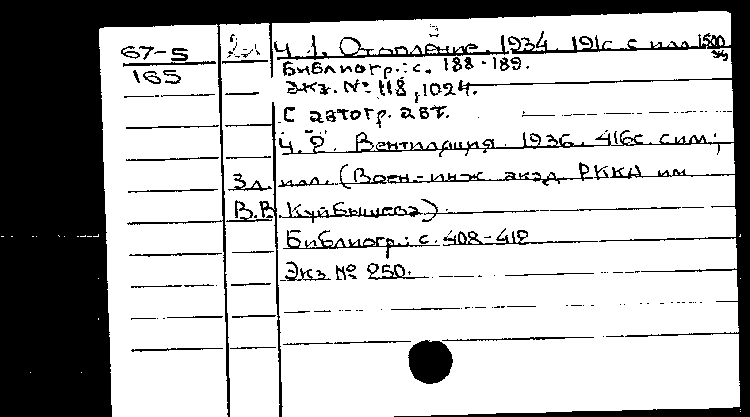 67-5 2л Ч. 1. Отопление. 1934. 191с. с илл. 1500 экз
165 Библиогр.: с. 188-189.
Экз. № 118, 1024.
С автогр. авт.
Ч. 2. Вентиляция. 1936. 416с. с им.;
3 л. илл. (Воен-инж. акад. РККА им.
В.В. Куйбышева).
Библиогр.: с. 408-412
Экз № 250.